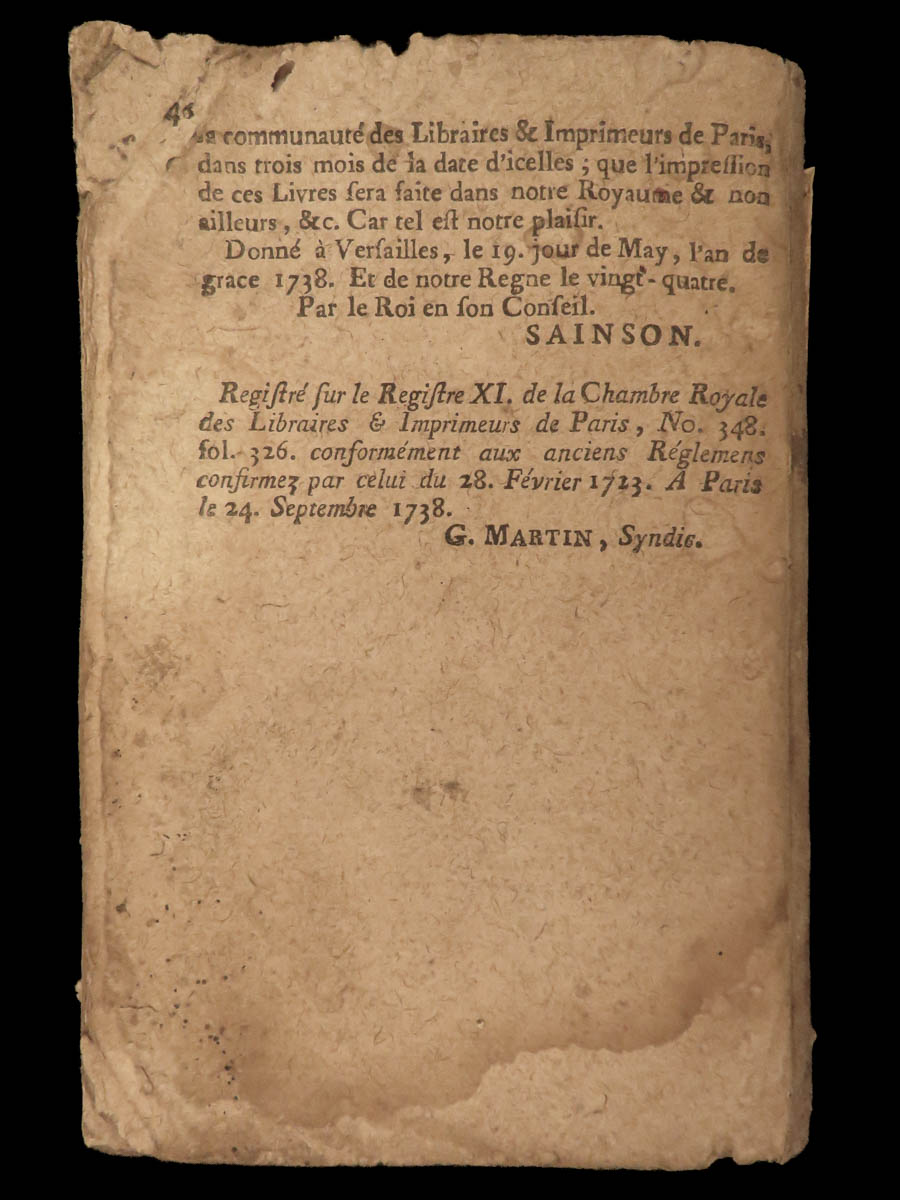 communauté des Libraires & Imprimeurs de Paris,
dans trois mois de la date d'icelles ; que l'impreſſion
de ces Livres ſera faite dans notre Royaume & non
ailleurs, &c. Car tel eſt notre plaiſir.
Donné à Verſailles, le 19. jour de May, l'an de
grace 1738. Et de notre Regne le vingt-quatre.
Par le Roi en ſon Conſeil.
SAINSON.
Regiſtré ſur le Regiſtre XI. de la Chambre Royale
des Libraires & Imprimeurs de Paris, No. 348.
fol. 326. conformément aux anciens Réglemens
confirmez par celui du 28. Février 1723. A Paris
le 24. Septembre 1738.
G. MARTIN, Syndic.